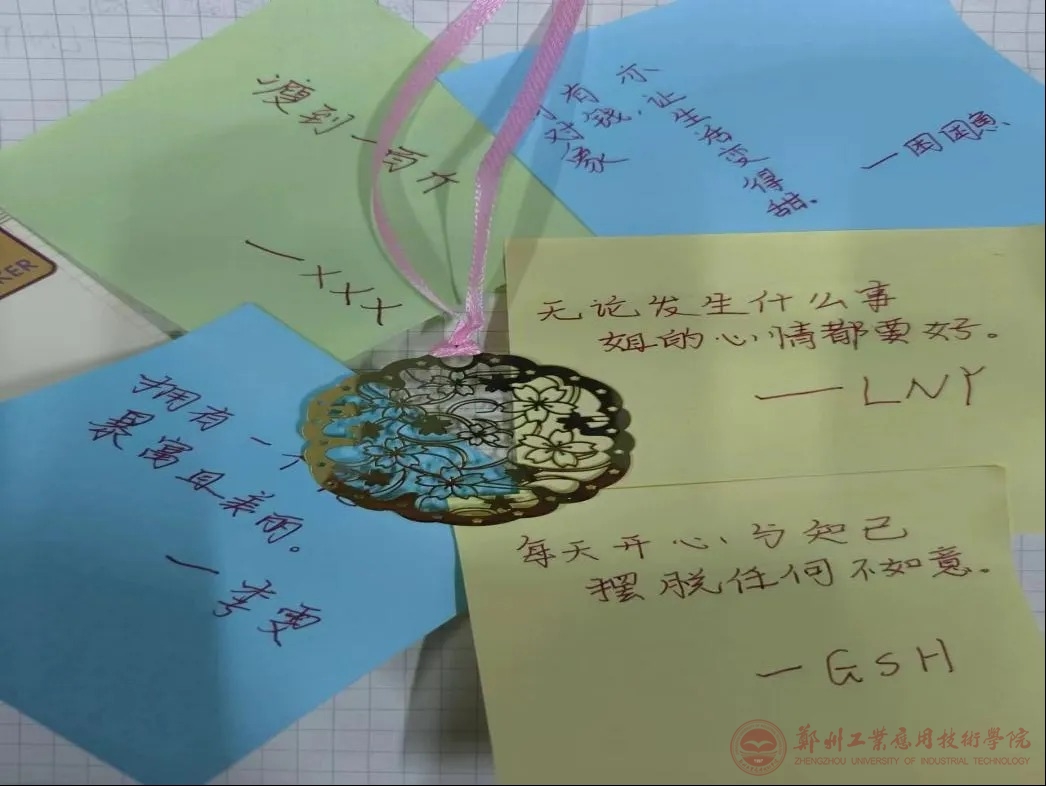 瘦到一百斤
一XXX
亦
让生活变得甜.
有钱,
对象
一困困鱼
KER
无论发生什么事
姐的心情都要好。
一LNY
拥有一个
暴富且美丽。
一李雯
每天开心、与知己
摆脱任何不如意。
一GSH
鄭州工業應用技術學院
ZHENGZHOU UNIVERSITY OF INDUSTRIAL TECHNOLOGY